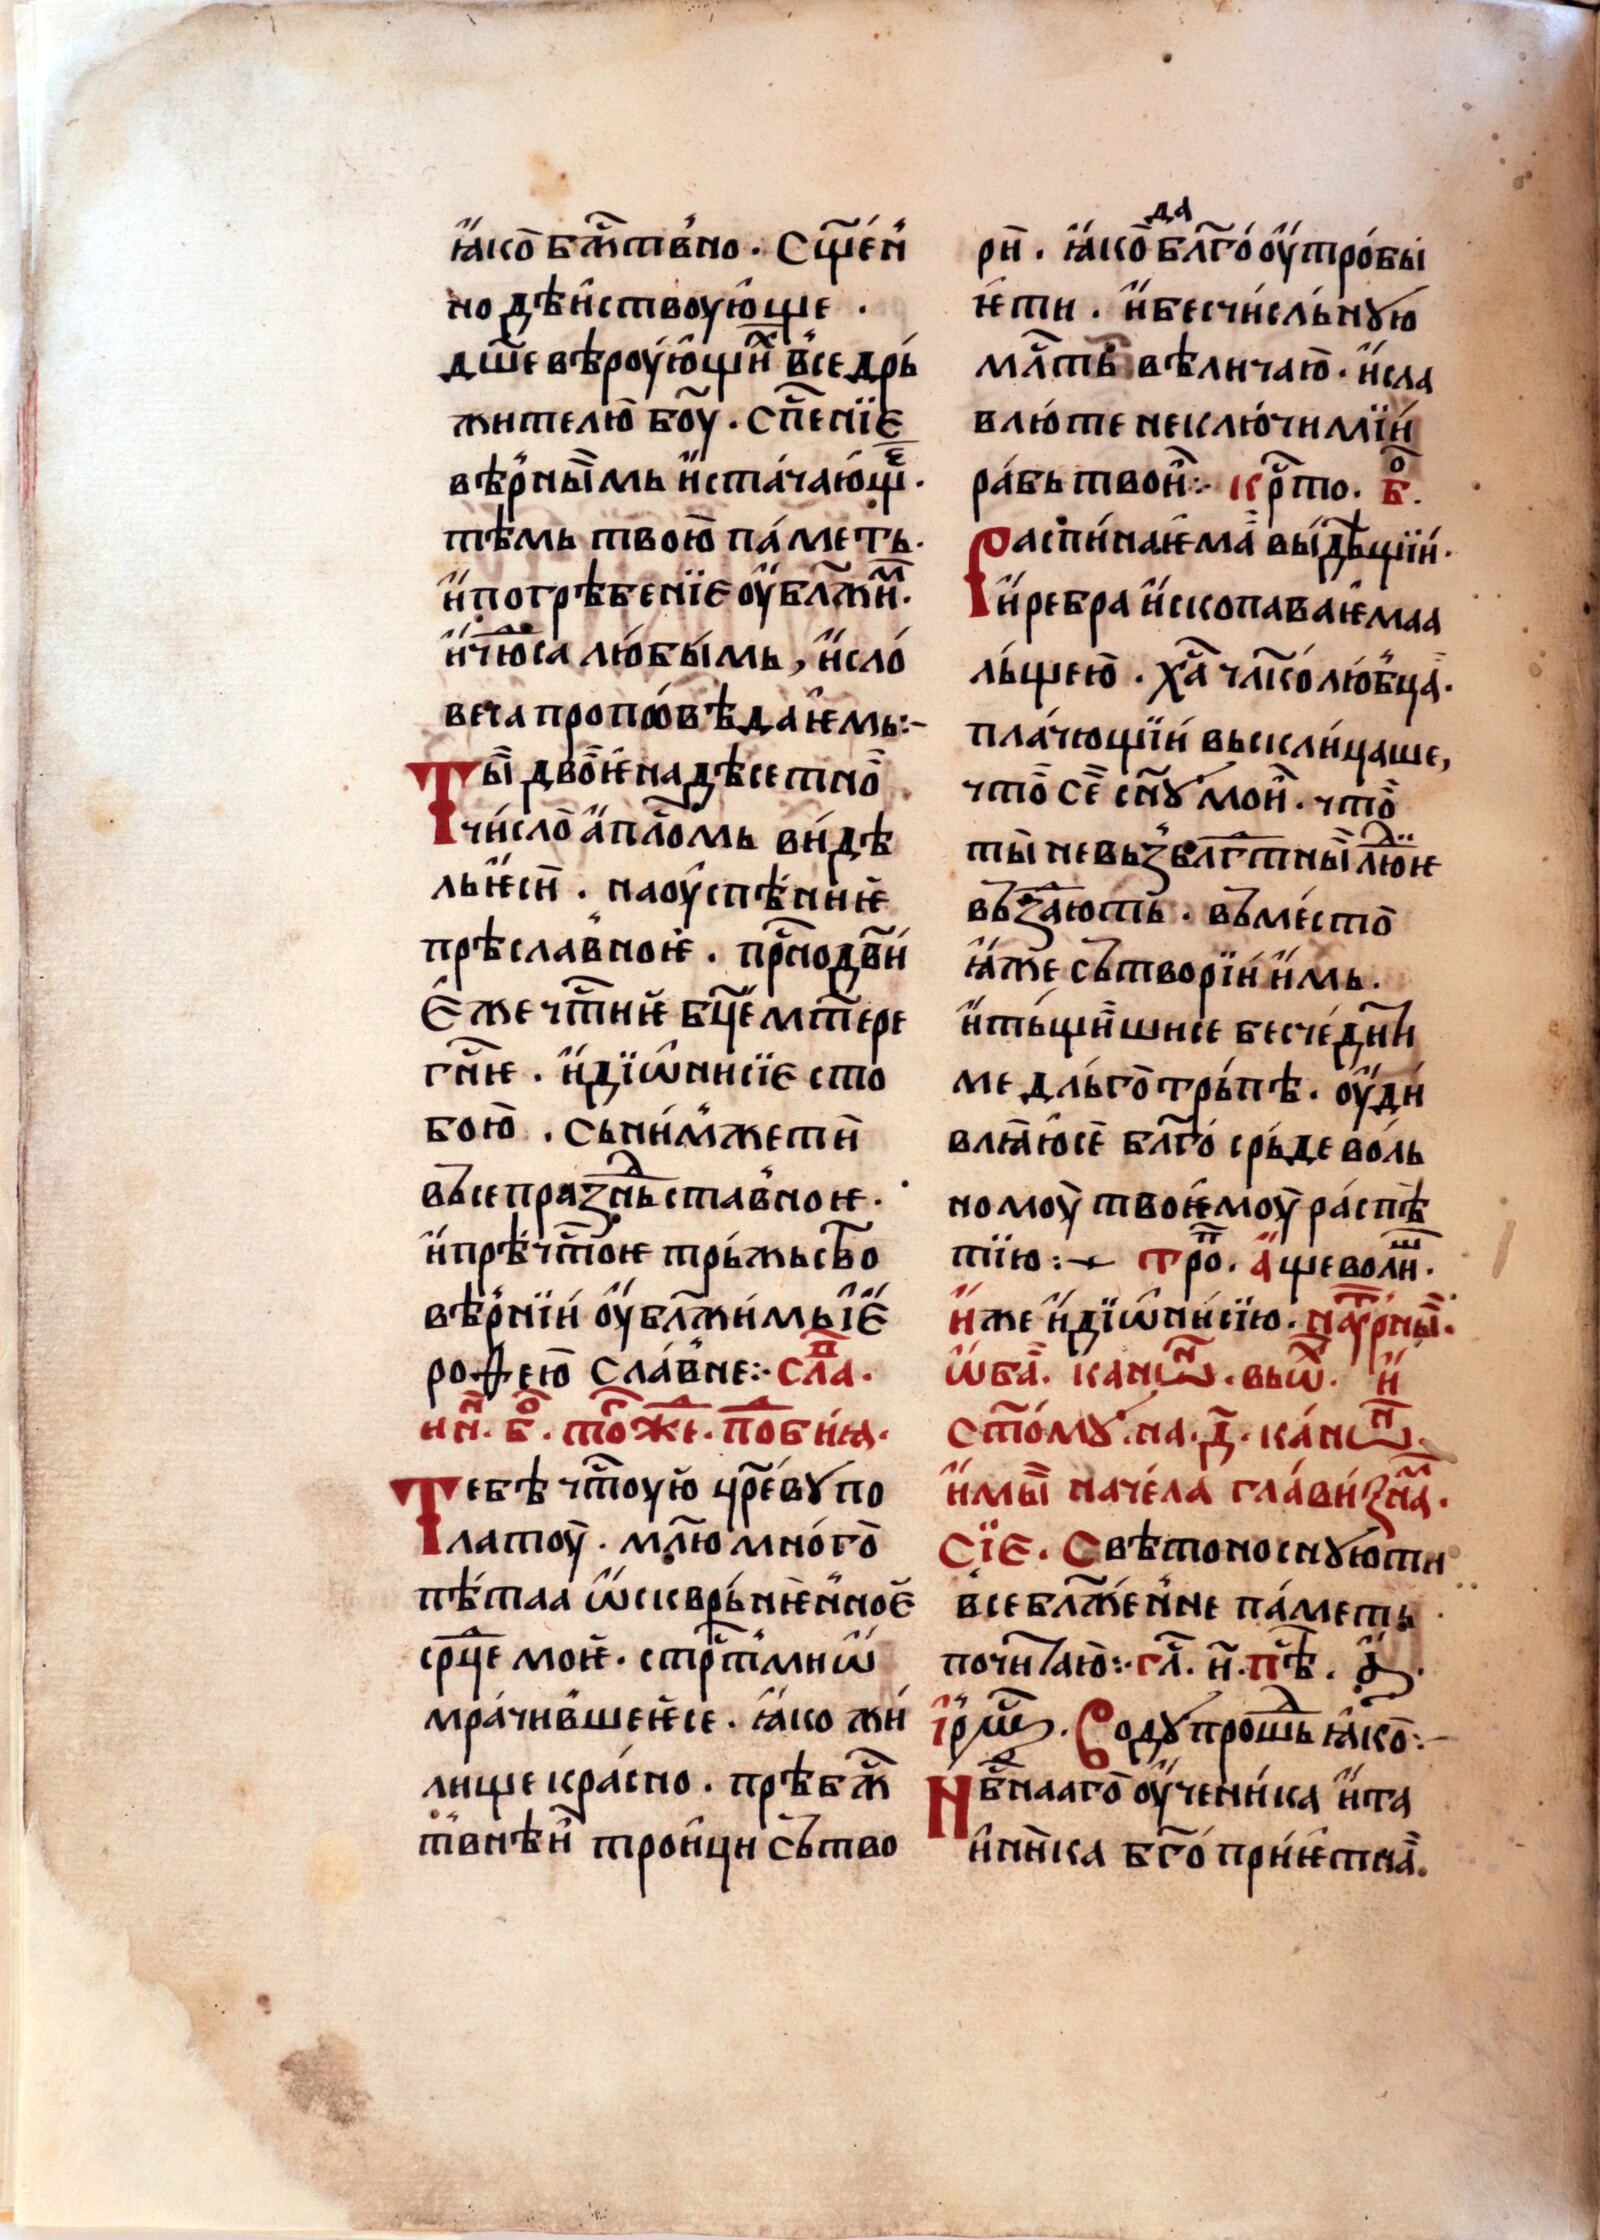 ꙗ҆ко̀ бж҃тв҆но. Сщ҃ен҆
но дѣи҆ствоую҆ще.
дш҃е вѣроую҆щи̏х в҆се дрь
жителю̀ бо҃у. сп҃енїе
вѣр҆ны̏мь и҆стачаю҆щ̾е.
тѣмь твою̀ паметь.
и҆погрѣбенїе оу҆бл҃жи̏м.
и҆чю҃деса любымь, и҆сло
веса проповѣдаѥ҆мь:~
Ты̏ двоѥ̀надѣсетно̏
число̀ а҆пл҃омь видѣ
льѥси̏. наоу҆спѣниѥ
прѣслав҆ноѥ. пр҃нодв҃и
Є҆же чт҃ниѥ бц҃е мт҃ере
гн҃ѥ. и҆дїѡ҆нисїе сто
бою̀. сьним҆жети̏
въсепразднь ставноѥ.
и҆прѣчт҃оѥ трьжьство
вѣр҆нїи оу҆бл҃жимь і҆Є҆
роѳею̀ слав҆не:· сла̏в.
ин҃. б҃о. то̏же. подоби҆ꙗ.
Тебѣ чт҃оую̀ цр҃еву по
латоу̀. мл҃ю много̀
пѣтаа ѡ҆скврьнѥн҆ное̏
ср҃це моѥ. стр҃тмиѡ҆
мрачив҆шеѥсе. ꙗ҆ко жи
лище красно. прѣбж҃
тв҆нѣи҆ троици сътво
ри̏. ꙗ҆ко̀да бл҃гооу҆тробы
ѥти. и҆бесчисльную
мл҃ть вѣличаю̀. и҆сла
влюте неключимїи
рабь твои҆:· кр҃то. б҃о.
Распинаѥма̏ выдѣщїи.
и҆ребра и҆скопаваѥмаа
льщею̀. х҃а чл҃колюб҆ца̏.
плачющїи выскли҆цаше,
что̏ се̏ сн҃у мои҆. что̏
ты̏ невъзбл҃гтны̏ людїѥ
въздають. въмѣсто̀
ꙗ҆же сътворїи и҆мь.
и҆тьщи̏шисе бесчедн҃и
ме дльготрьпѣ. оу҆ди
влꙗюсе̏ бл҃го срьде воль
номоу̀ твоѥмоу̀ распѣ
тїю:~ тро̏п. а҆ще воли̏ш.
и҆же и҆дїѡ҆нисїю. на҃рны̏.
ѡ҆ба̏. канѡн. выѿ. и҆
ст҃ому. на. д҃. канѡн.
и҆мы̏ начела главизна̏м.
сїе. Свѣтоносную ти
в҆себлж҃ен҆не паметь
почитаю̀:· гл҃. и҃. пѣ̏с. а҃.
і҆рмѡс. Воду прошьд ꙗ҆ко̀:~
Нб҃наго̀ оу҆ченика и҆та
и҆н҆ика бг҃о приѥтна̏.